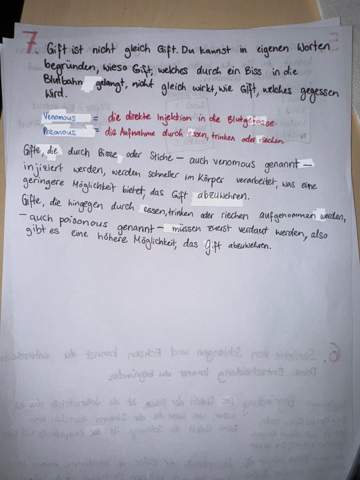 7. Gift ist nicht gleich Gift. Du kannst in eigenen Worten
begründen, wieso Gift, welches durch ein Biss in die
Blutbahn gelangt, nicht gleich wirkt, wie Gift, welches gegessen
wird.
Venomous = die direkte Injektion in die Blutgefässe
= die Aufnahme durch essen, trinken oder riechen
Gifte, die durch Bisse oder Stiche – auch venomous genannt –
injiziert werden, werden schneller im Körper verarbeitet, was eine
geringere Möglichkeit bietet, das Gift abzuwehren.
Gifte, die hingegen durch essen, trinken oder riechen aufgenommen werden,
– auch poisonous genannt – müssen zuerst verdaut werden, also
gibt es eine höhere Möglichkeit, das Gift abzuwehren.